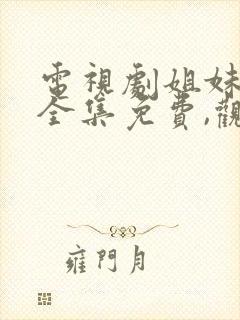 電視劇姐妹
全集免費,觀
雍門月